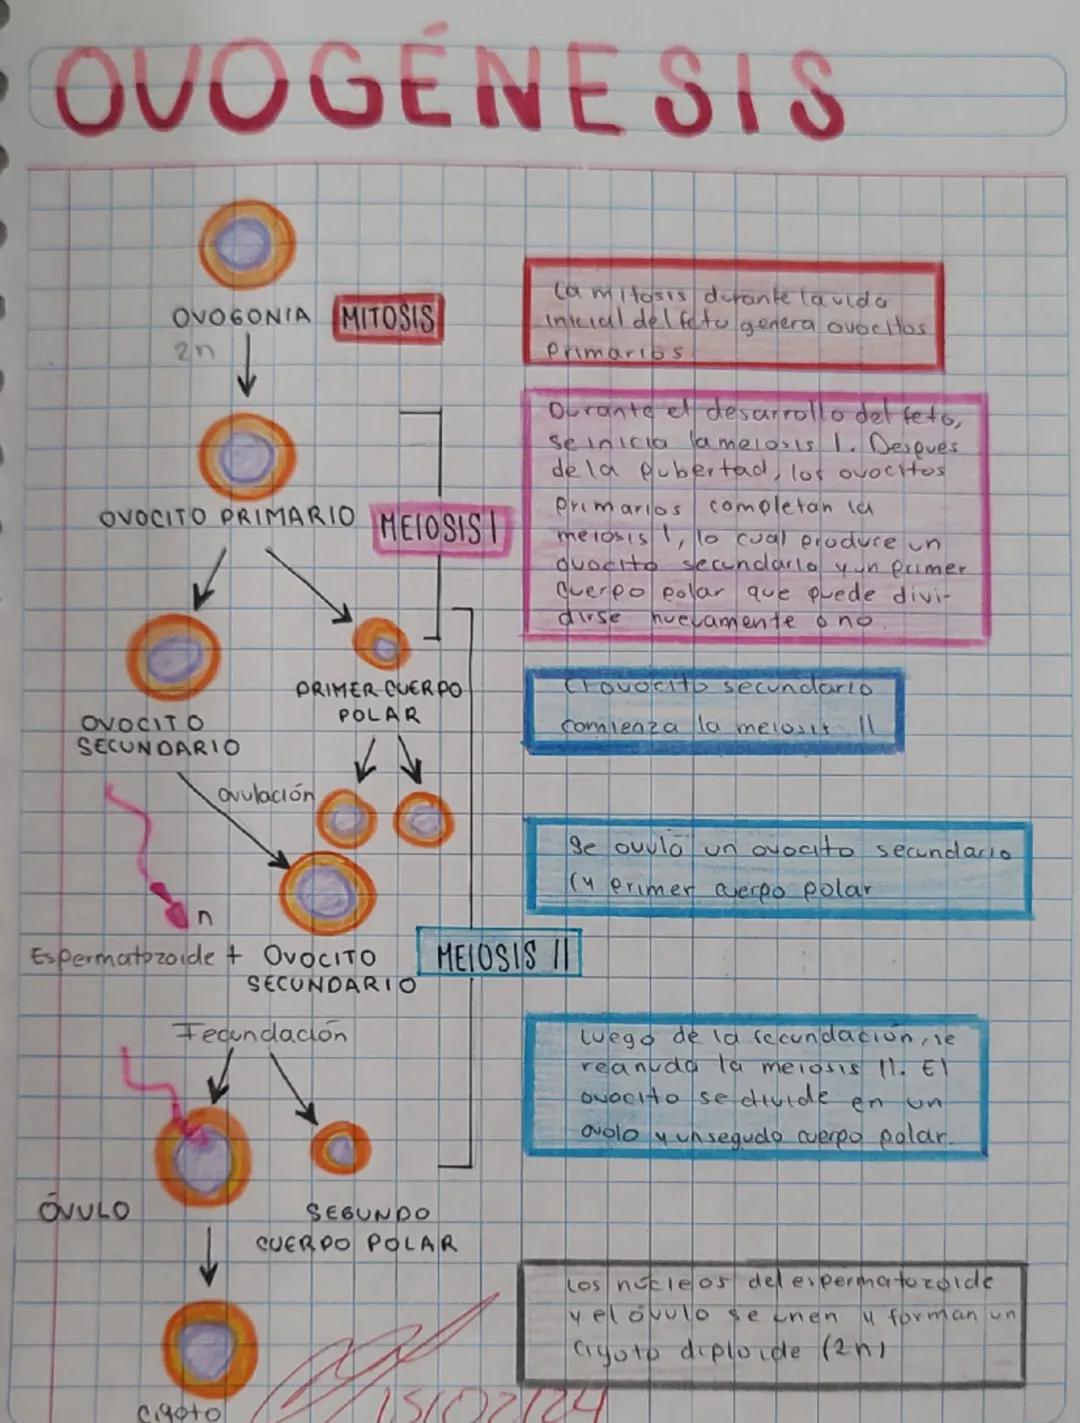 OVOGÉNESIS
OVOGONIA
2n
MITOSIS
La mitosis durante la vida
inicial del feto genera ovocitos
primarios.
OVOCITO PRIMARIO
MEIOSIS I
Durante el desarrollo del feto,
se inicia la meiosis I. Despues
de la pubertad, los ovocitos
primarios completan la
meiosis I, lo cual produce un
ovocito secundario y un primer
cuerpo polar que puede divi-
dirse nuevamente o no.
OVOCITO
SECUNDARIO
PRIMER CUERPO
POLAR
El ovocito secundario
comienza la meiosis II
ovulación
Se ovula un ovocito secundario
(y primer cuerpo polar
n
Espermatozoide + OVOCITO
SECUNDARIO
MEIOSIS II
Fecundación
Luego de la fecundación, se
reanuda la meiosis II. El
ovocito se divide en un
ovulo y un segudo cuerpo polar.
ÓVULO
SEGUNDO
CUERPO POLAR
Los núcleos del espermatozoide
y el óvulo se unen y forman un
cigoto diploide (2n)
cigoto
15/02/24